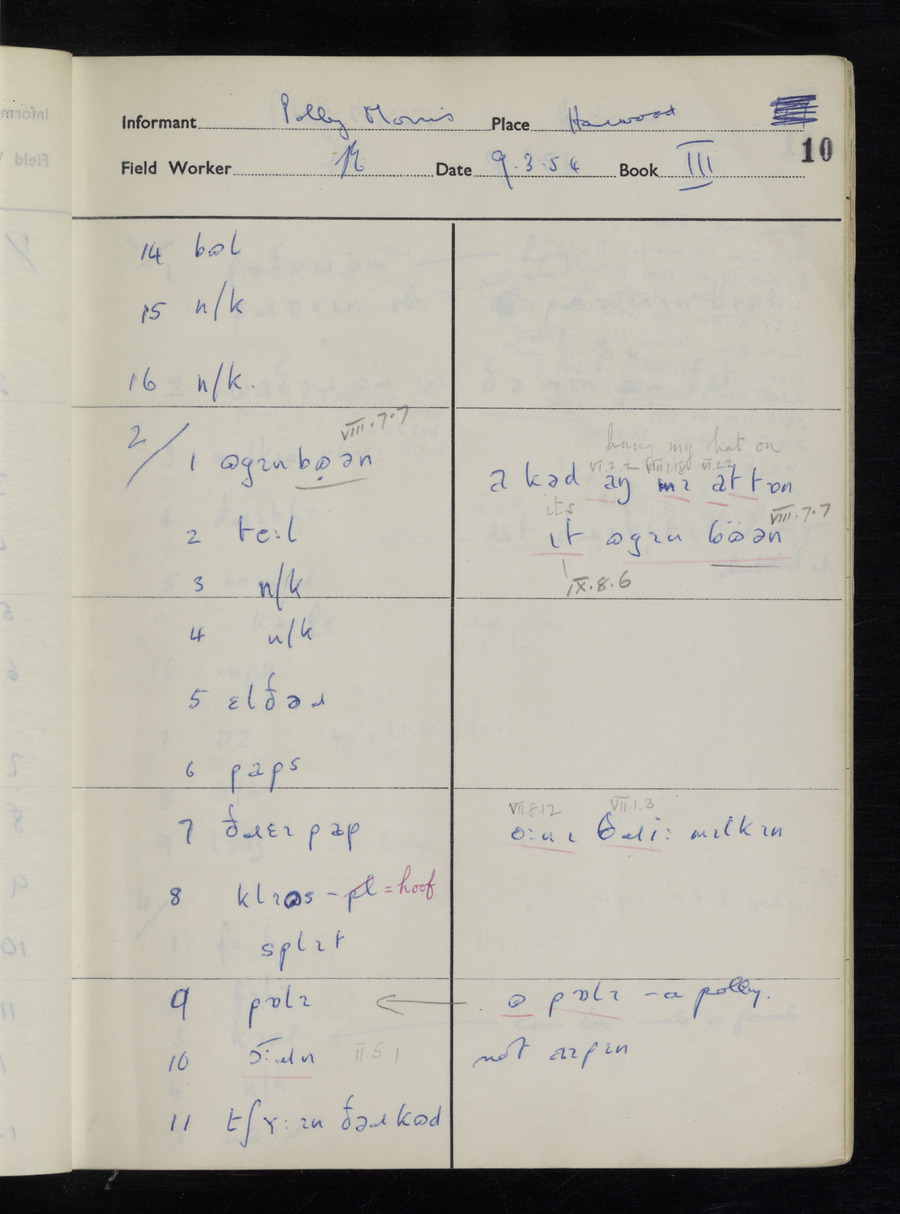 Informant Polly Morris Place Harwood
10
Field Worker Date 9.3.54 Book III
14 bəl
15 n/k
16 n/k.
VIII.7.7
2/ 1 əgɪnbọən
hang my hat on
VI.2.2 VIII.1.18 VI.2.2
a kəd aŋ mɪ at tɒn
its
VIII.7.7
ɪt əgɪn böən
IX.8.6
2 te:l
3 n/k
4 n/k
5 ɛlðəɹ
6 paps
VII.8.12 VII.1.3
7 ðɹɛɪ pap
ɒ:nɪ ðɹi: mɪlkɪn
8 klɪəs - pl = hoof
splɪt
9 pɒlɪ
ə pɒlɪ - a polley.
10 ɔ:ɹn II.5.1
not aɪpɪn
11 tʃɤ:ɪn ðəɹkəd